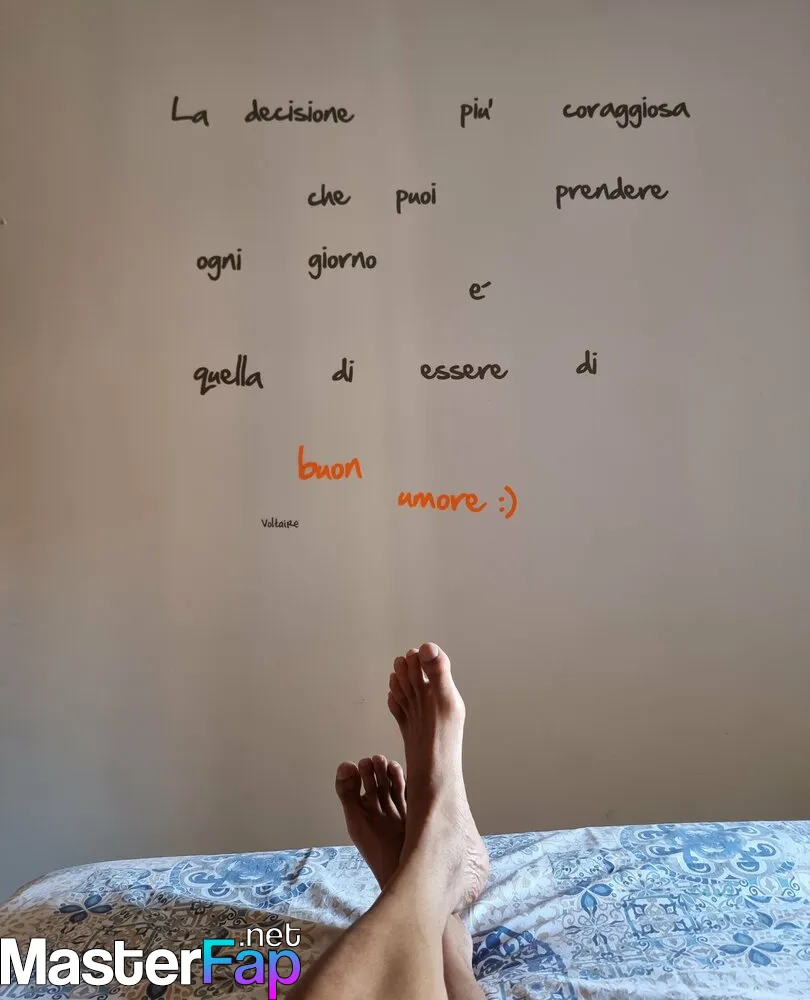 La decisione piu' coraggiosa
che puoi prendere
ogni giorno
e'
quella di essere di
buon
umore :)
Voltaire
MasterFap.net